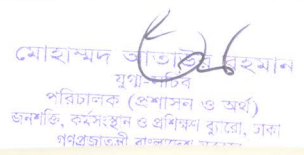 মোহাম্মদ আতাউর রহমান
যুগ্ম-সচিব
পরিচালক (প্রশাসন ও অর্থ)
জনশক্তি, কর্মসংস্থান ও প্রশিক্ষণ ব্যুরো, ঢাকা
গণপ্রজাতন্ত্রী বাংলাদেশ সরকার